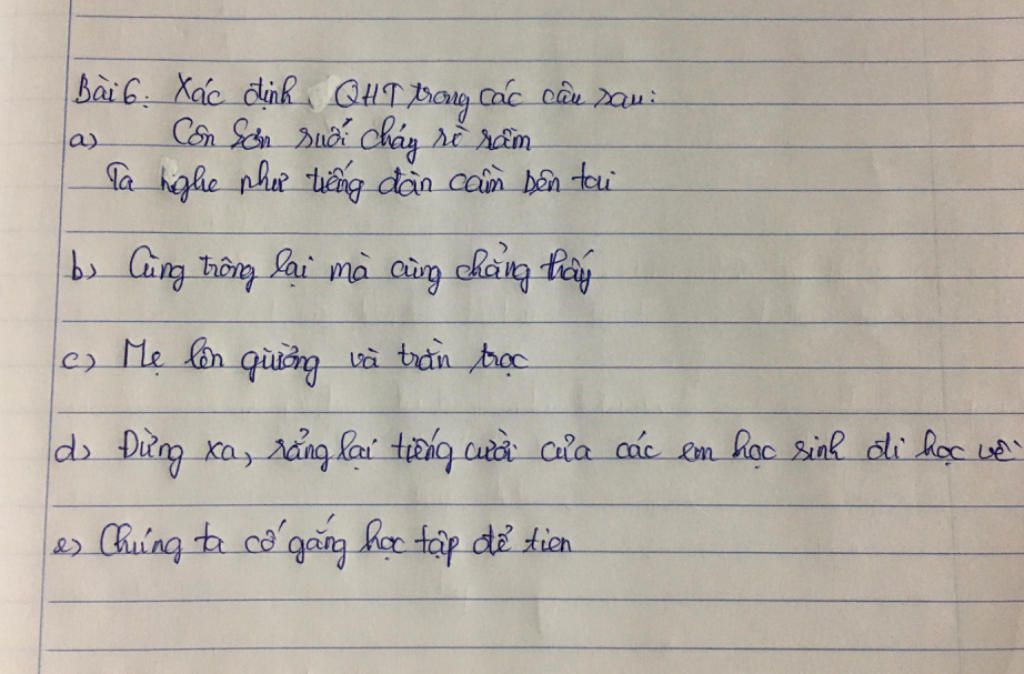 Bài 6: Xác định QHT trong các câu sau:
a) Côn Sơn suối chảy rì rầm
Ta nghe như tiếng đàn cầm bên tai
b) Cùng trông lại mà cùng chẳng thấy
c) Mẹ lên giường và trằn trọc
d) Đừng xa, rẳng lại tiếng cười của các em học sinh đi học về
e) Chúng ta cố gắng học tập để tien